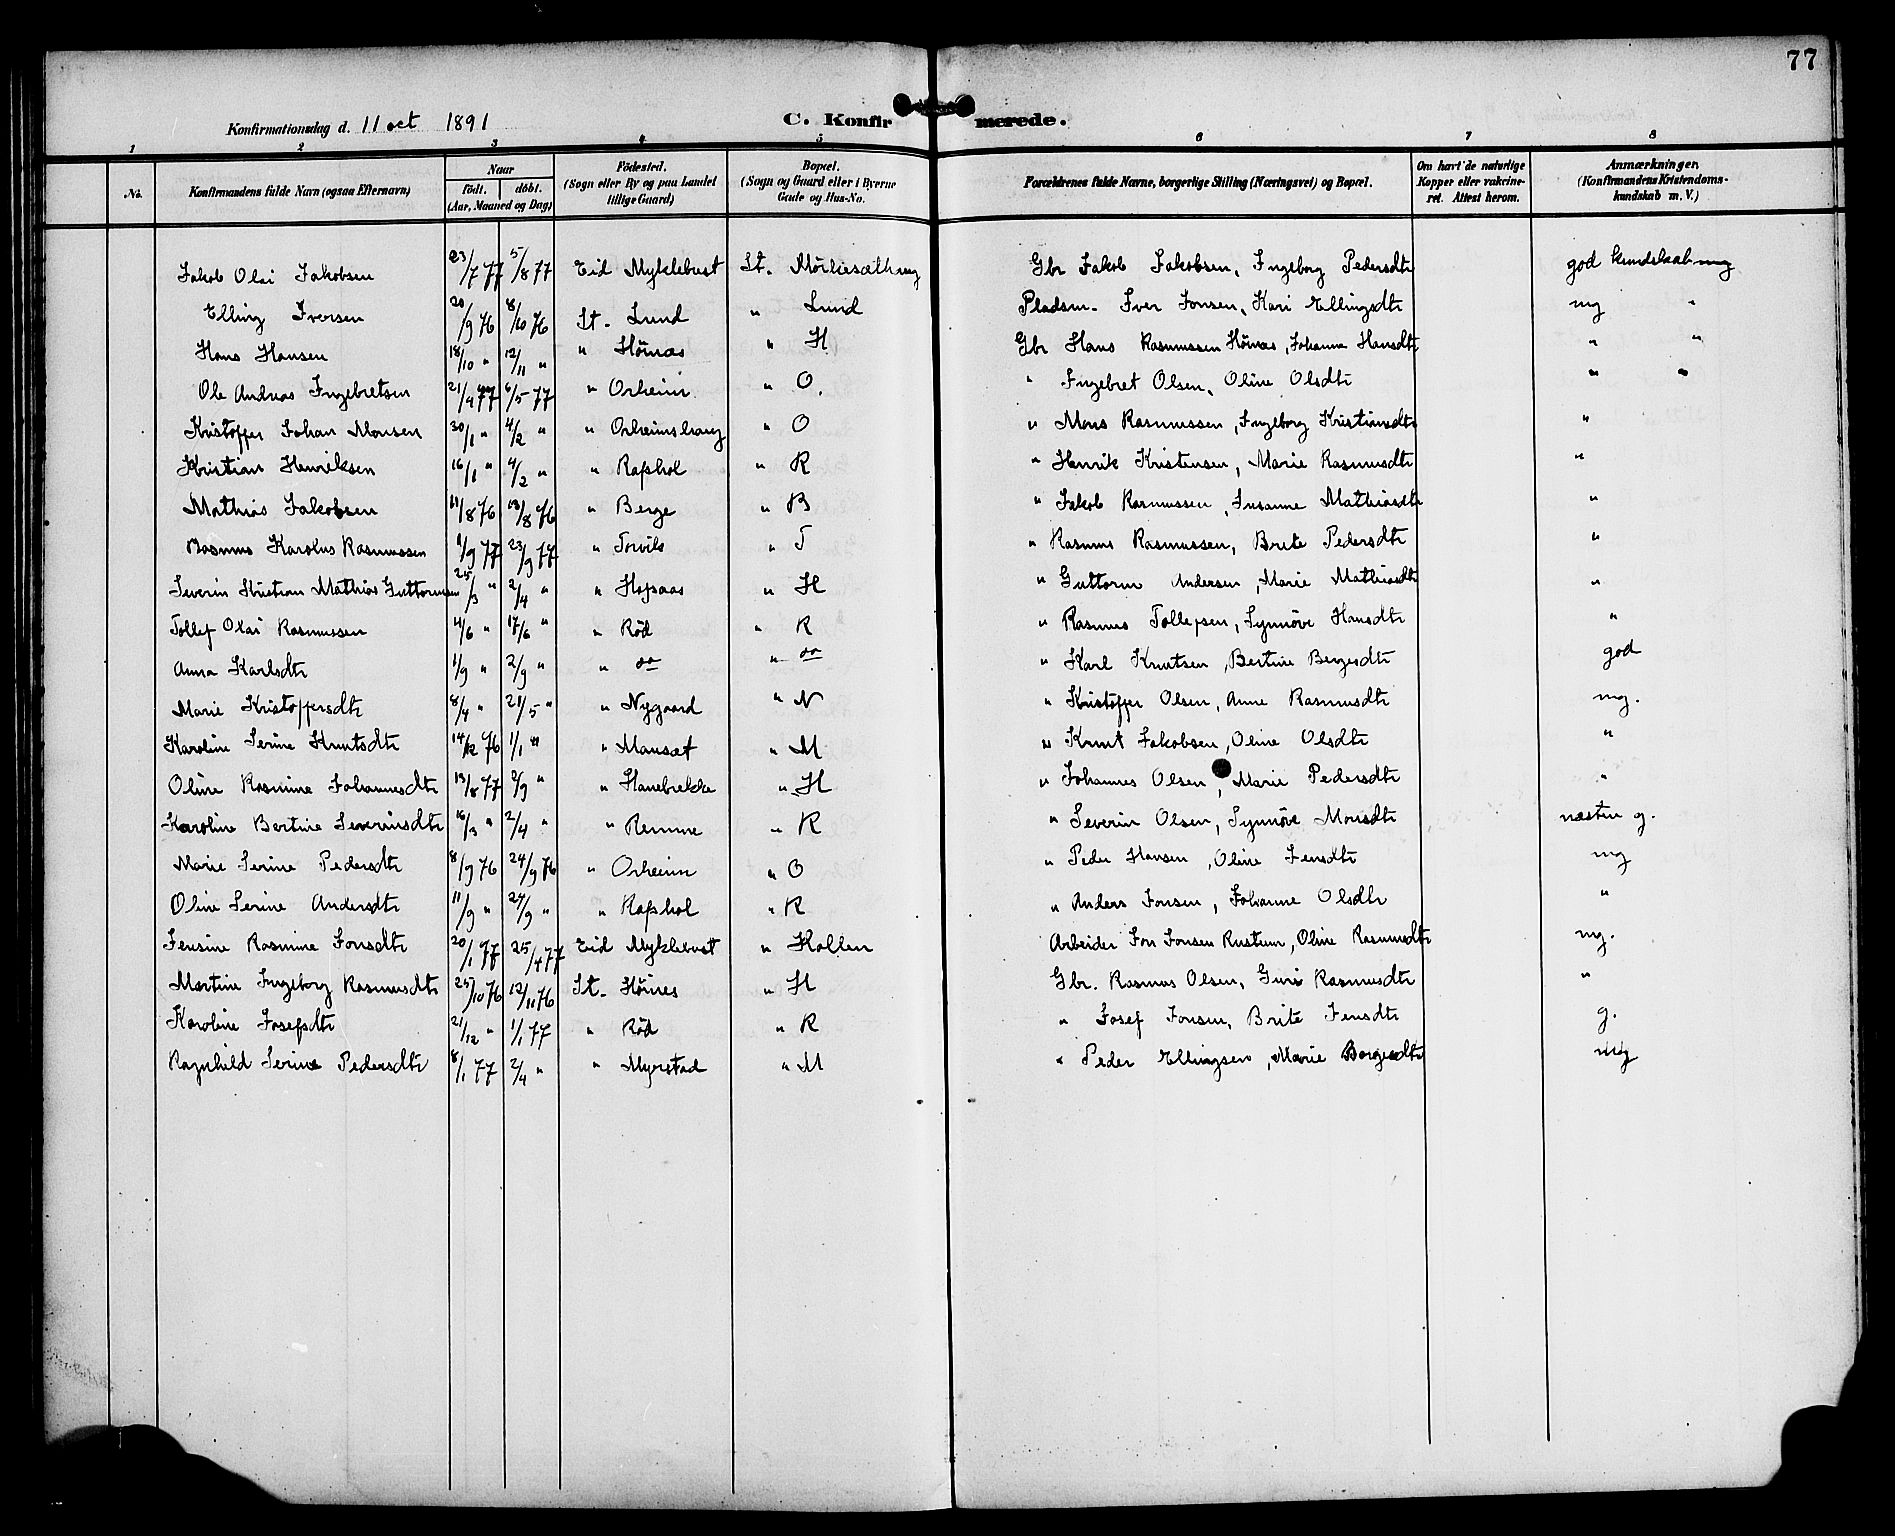 77
Konfirmationsdag d. 11 oct 1891 C. Konfirmerede.
1 2 3 4 5 6 7 8
No. Konfirmandens fulde Navn (ogsaa Efternavn) Naar født. døbt. (Aar, Maaned og Dag) Fødested. (Sogn eller By og paa Landet tillige Gaard) Bopæl. (Sogn og Gaard eller i Byerne Gade og Hus-No. Forældrenes fulde Navne, borgerlige Stilling (Næringsvei) og Bopæl. Om havt de naturlige Kopper eller vakcineret. Attest herom. Anmærkninger. (Konfirmandens Kristendomskundskab m. V.)
Jakob Olai Jakobsen 23/7 77 5/8 77 Eid Myklebust St. Gbr Jakob Jakobsen, Ingeborg Pedersdtr god kundskab
Elling Iversen 20/9 76 8/10 76 St. Lund " Lund Pladsm. Iver Jonsen, Kari Ellingsdtr mg "
Hans Hansen 18/10 " 12/11 " " Hörnæs " H Gbr Hans Rasmussen Hörnæs, Johanne Hansdtr " "
Ole Andreas Ingebretsen 21/4 77 6/5 77 " Orheim " O. " Ingebret Olsen, Oline Olsdtr " "
Kristoffer Johan Monsen 20/1 " 4/2 " " Orheimshaug " O " Mons Rasmussen, Ingeborg Kristiansdtr "
Kristian Henriksen 16/1 " 4/2 " " Rafshol " R " Henrik Kristensen, Marie Rasmusdtr "
Mathias Jakobsen 11/8 76 13/8 76 " Berge " B " Jakob Rasmussen, Susanne Mathiasdtr "
Rasmus Karolus Rasmussen 1/9 77 23/9 77 " Torvik " T " Rasmus Rasmussen, Brite Pedersdtr "
Severin Kristian Mathias Guttormsen 25/3 " 2/4 " " Hopsaas " H " Guttorm Andersen, Marie Mathiasdtr "
Tollef Olai Rasmussen 4/6 " 17/6 " " Röd " R " Rasmus Tollefsen, Synnöve Hansdtr "
Anna Karlsdtr 1/9 " 2/9 " " do " do " Karl Knutsen, Bertine Bergesdtr god
Marie Kristoffersdtr 8/4 " 21/5 " " Nygaard " N " Kristoffer Olsen, Anne Rasmusdtr mg.
Karoline Serine Knutsdtr 14/12 76 1/1 " " Maurset " M " Knut Jakobsen, Oline Olsdtr "
Oline Rasmine Johannesdtr 13/8 77 2/9 " " Hanebrekke " H " Johannes Olsen, Marie Pedersdtr "
Karoline Bertine Severinsdtr 16/3 " 2/4 " " Remme " R " Severin Olsen, Synnöve Monsdtr næsten g.
Marie Serine Pedersdtr 8/9 76 24/9 76 " Orheim " O " Peder Hansen, Oline Jensdtr mg
Oline Serine Andersdtr 11/9 " 24/9 " " Rafshol " R " Anders Jonsen, Johanne Olsdtr "
Jensine Rasmine Jonsdtr 20/1 77 25/4 77 Eid Myklebust " Kollen Arbeider Jon Jonsen Rustum, Oline Rasmusdtr mg.
Martine Ingeborg Rasmusdtr 25/10 76 12/11 76 St. Hörnes " H Gbr. Rasmus Olsen, Guri Rasmusdtr "
Karoline Josefsdtr 21/12 " 1/1 77 " Röd " R " Josef Jonsen, Brite Jensdtr g.
Ragnhild Serine Pedersdtr 8/1 77 2/4 " " Myrstad " M " Peder Ellingsen, Marie Borgesdtr mg